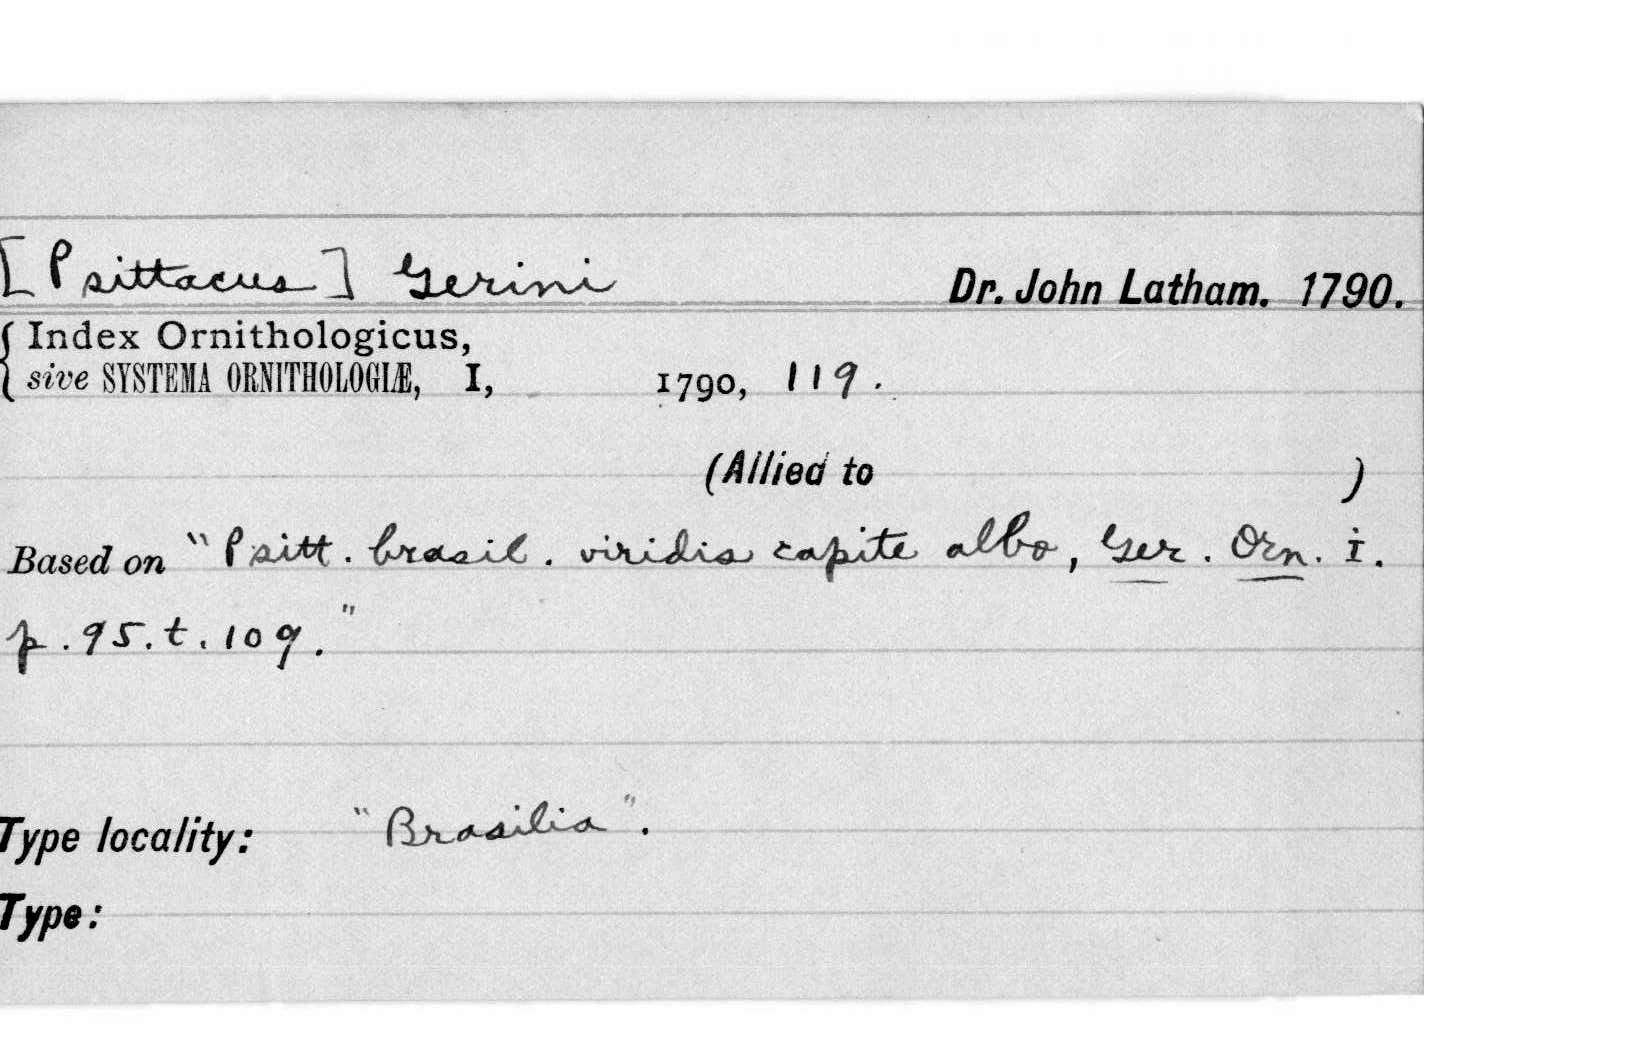 [Psittacus] Gerini Dr. John Latham. 1790.
{ Index Ornithologicus,
sive SYSTEMA ORNITHOLOGIÆ, I, 1790, 119.
(Allied to )
Based on "Psitt. brasil. viridis capite albo, Ger. Orn. I.
p. 95. t. 109."
Type locality: "Brasilia".
Type: